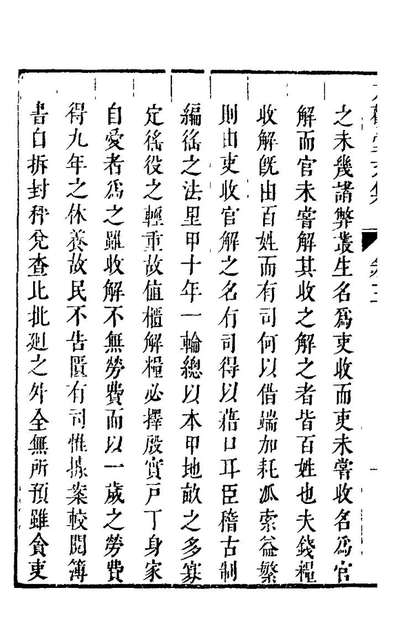 之未幾諸弊叢生名爲吏收而吏未嘗收名爲官
解而官未嘗解其收之解之者皆百姓也夫錢糧
收解旣由百姓而有司何以借端加耗孤索益繁
則由吏收官解之名有司得以藉口耳臣稽古制
編徭之法里甲十年一輪總以本甲地畝之多寡
定徭役之輕重故值櫃解糧必擇殷實戸丁身家
自愛者爲之雖收解不無勞費而以一歲之勞費
得九年之休養故民不告匱有司惟據案較閱簿
書自拆封秤兌查比批廻之外全無所預雖貪吏